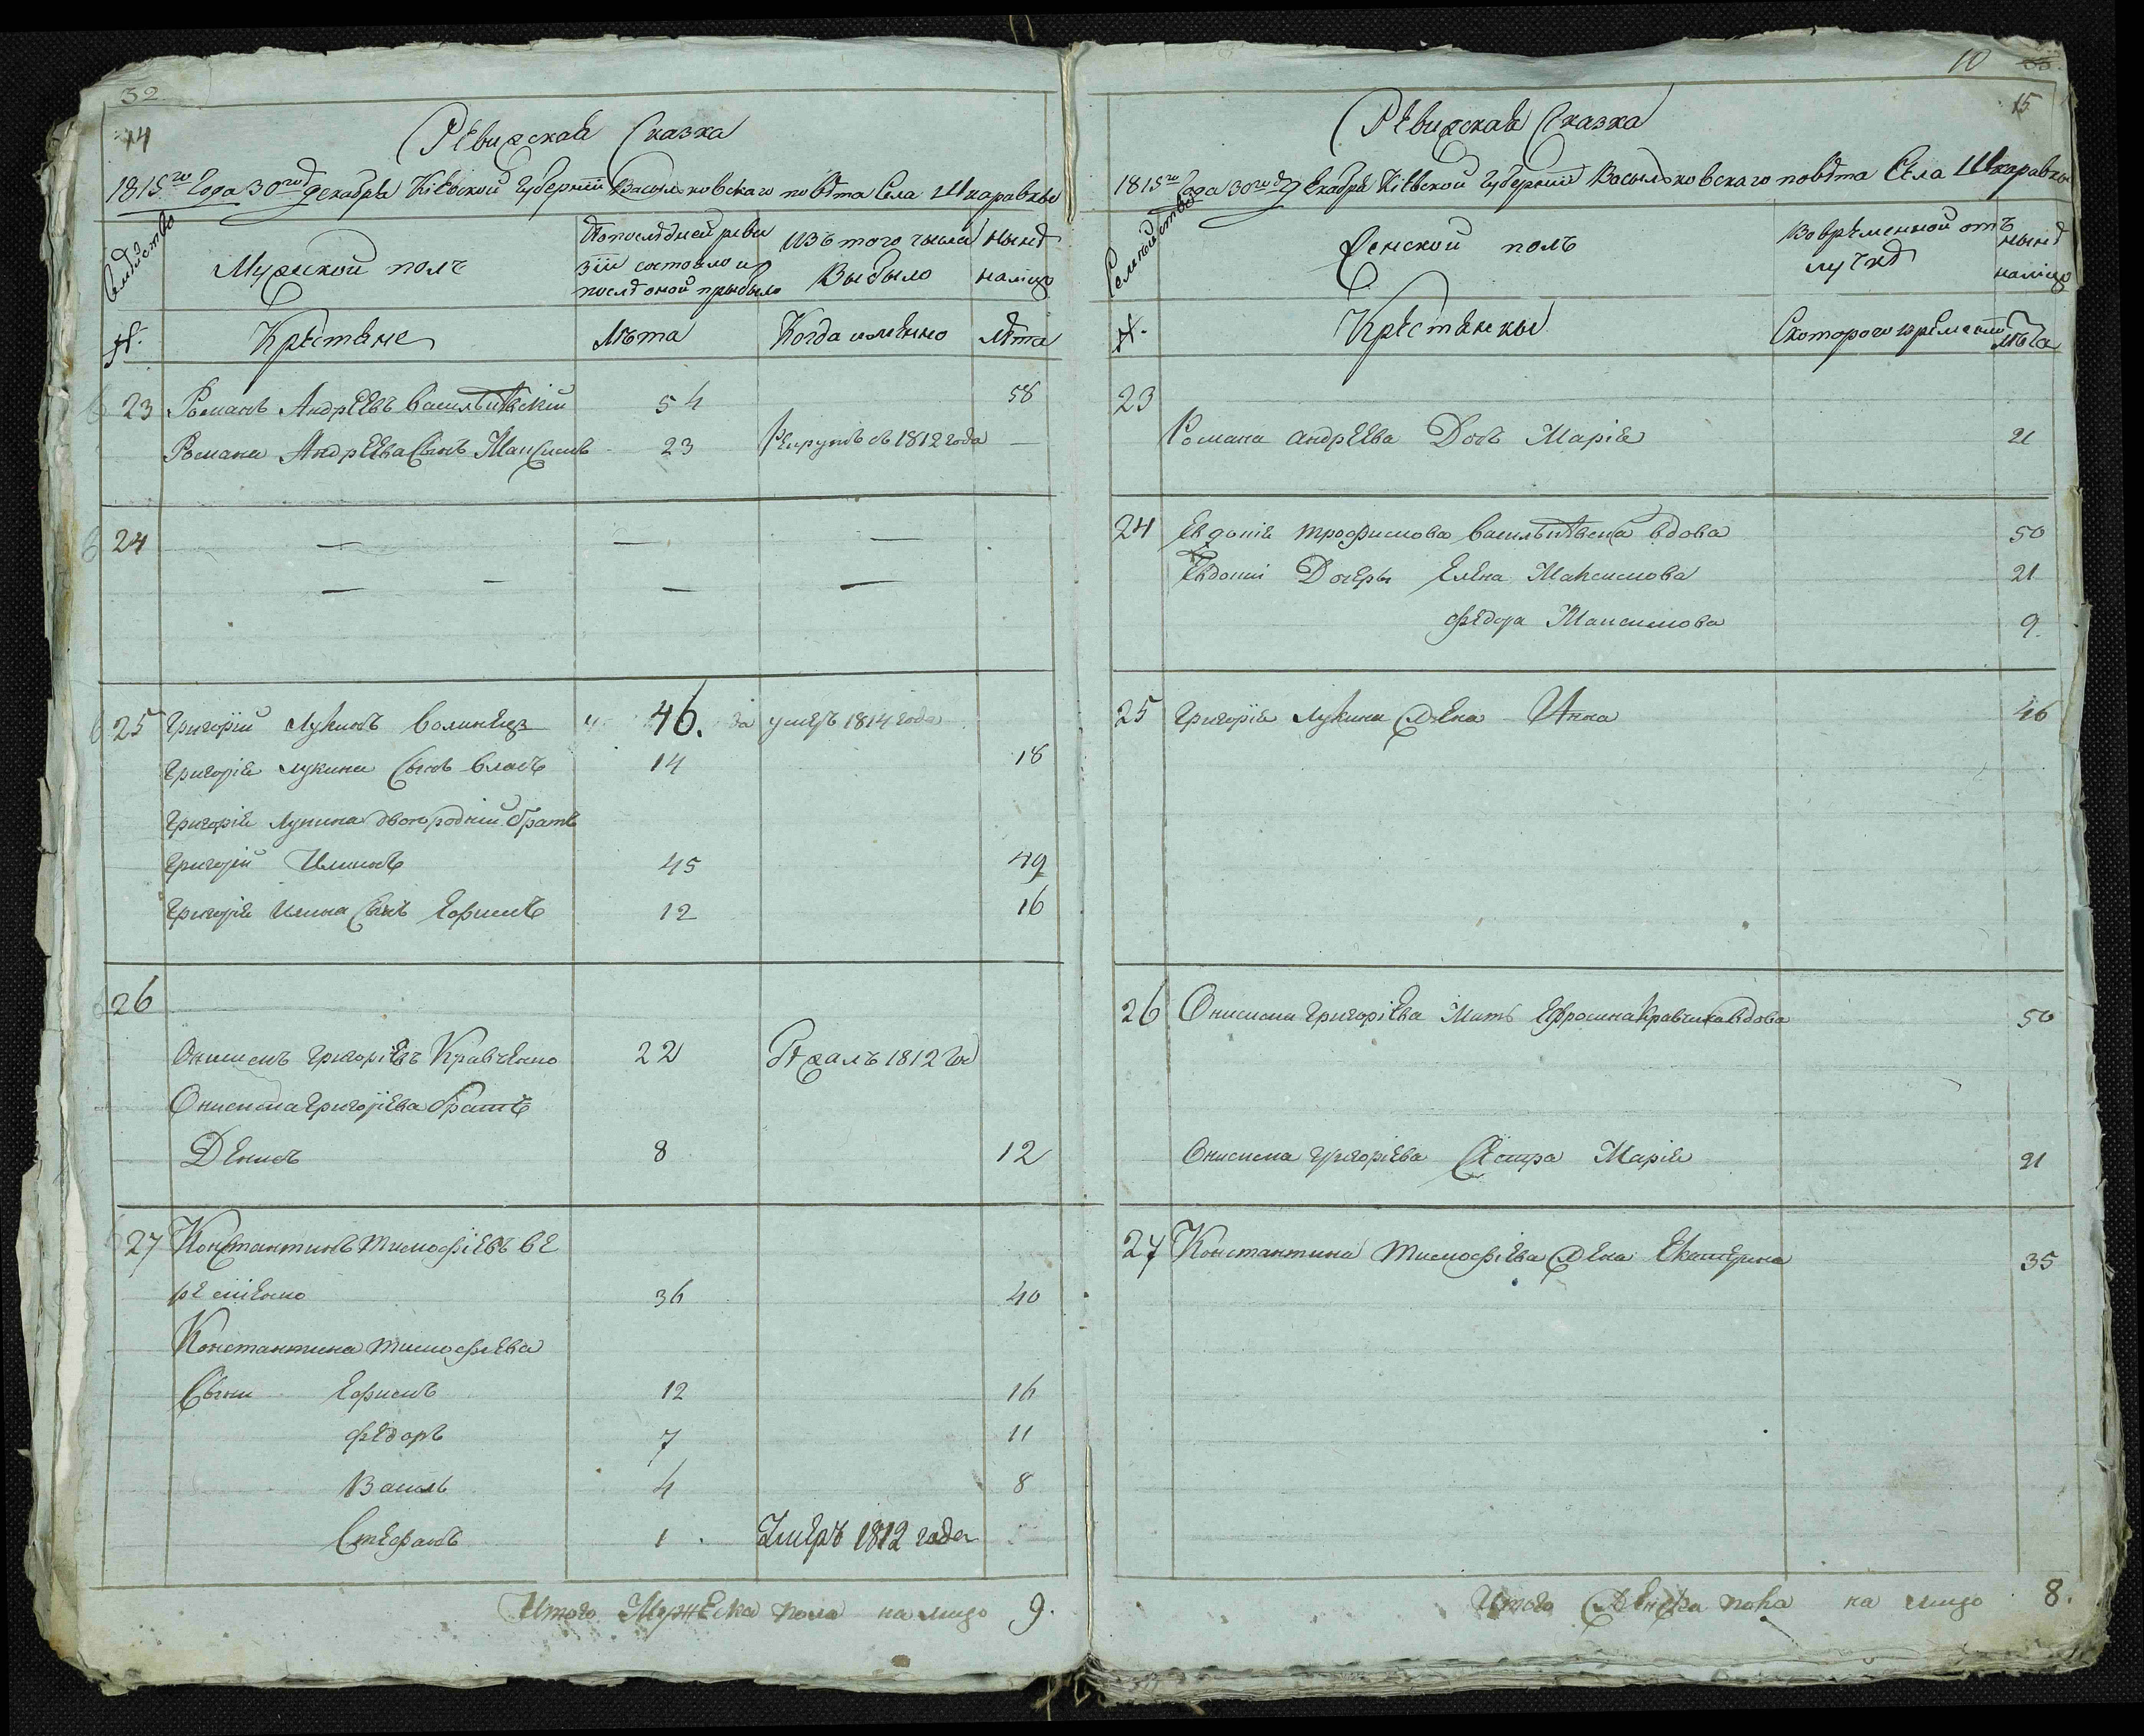 32
14
Ревизская Сказка
1815го Года 30го декабря Кіевской Губерніи Васильковскаго повѣта Села Шкаравки
Семѣйство
Мужской полъ
Попослѣдней реви
зіи состояло и
послѣ оной прыбыло
Изъ того числа
Выбыло
Нынѣ
налицо
№.
Крестяне
Лѣта
Когда именно
Лѣта
23 Романъ Андрѣевъ 54 58
Романа Андрѣева Сынъ Максимъ 23 Рекрутъ въ 1812 года —
24 — — —
— - — —
25 Григорій Лукинъ Волинецъ 46. умеръ 1814 года
Григорія Лукина Сынъ Власъ 14 18
Григорія Лукина двоюродній братъ
Григорій Илинъ 45 49
Григорія Илина Сынъ Ефимъ 12 16
26
Онисимъ Григоріевъ Кравченко 22 Бѣжалъ 1812 го
Онисима Григоріева братъ
Денисъ 8 12
27 Константинъ Тимофіевъ Ве
ременко 36 40
Константина Тимофіева
Сыни Ефимъ 12 16
Федоръ 7 11
Василь 4 8
Стефанъ 1 Умеръ 1812 года
Итого Мужеска пола на лицо 9.
10 33
15
Ревизская Сказка
1815го Года 30го Декабря Кіевской Губерніи Васильковскаго повѣта Села Шкаравки
Семѣйство
Женской полъ
Вовременной отъ
лучкѣ
нынѣ
налицо
№.
Крестянки
Скоторого времени
лѣта
23
Романа Андрѣева Дочъ Марія 21
24 Евдокія Трофимова вдова 50
Евдокіи Дочеры Елена Максимова 21
Федора Максимова 9
25 Григорія Лукина Жена Анна 46
26 Онисима Григоріева Мать Ефросина Кравчиха вдова 50
Онисима Григоріева Сестра Марія 21
27 Константина Тимофіева Жена Екатерина 35
Итого Женска пола на лицо 8.